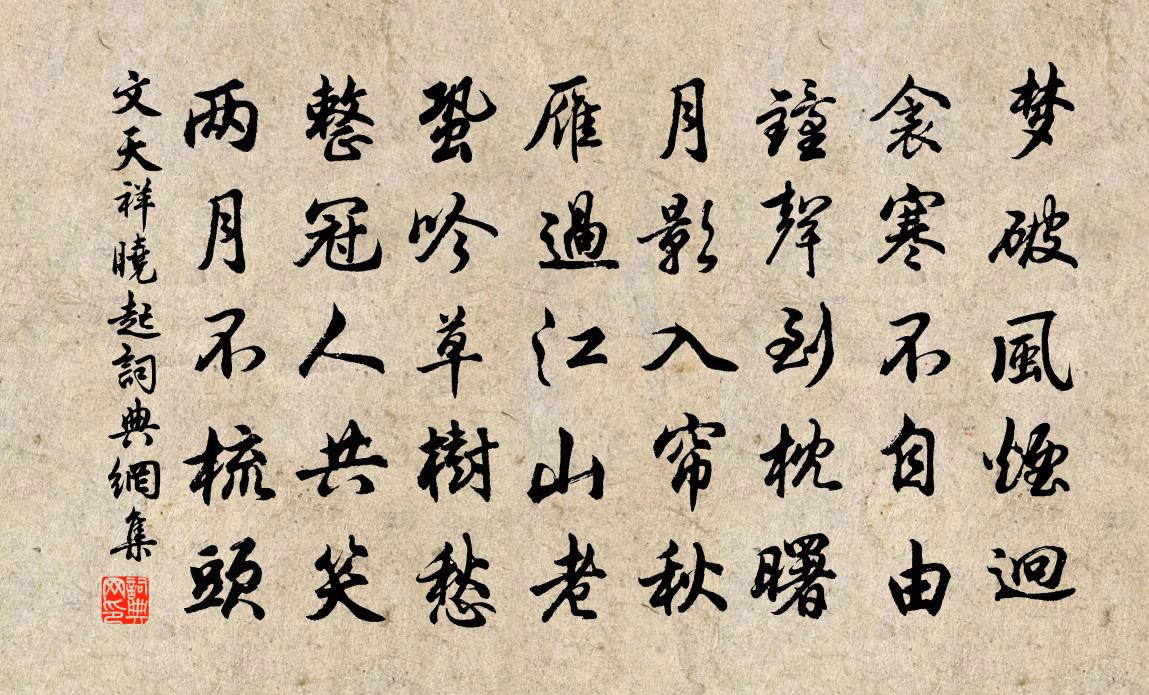 梦破風煙迥
衾寒不自由
鐘聲到枕曙
月影入帘秋
雁過江山老
蛩吟草樹愁
整冠人共笑
两月不梳頭
文天祥曉起詞典網集
詞典网印